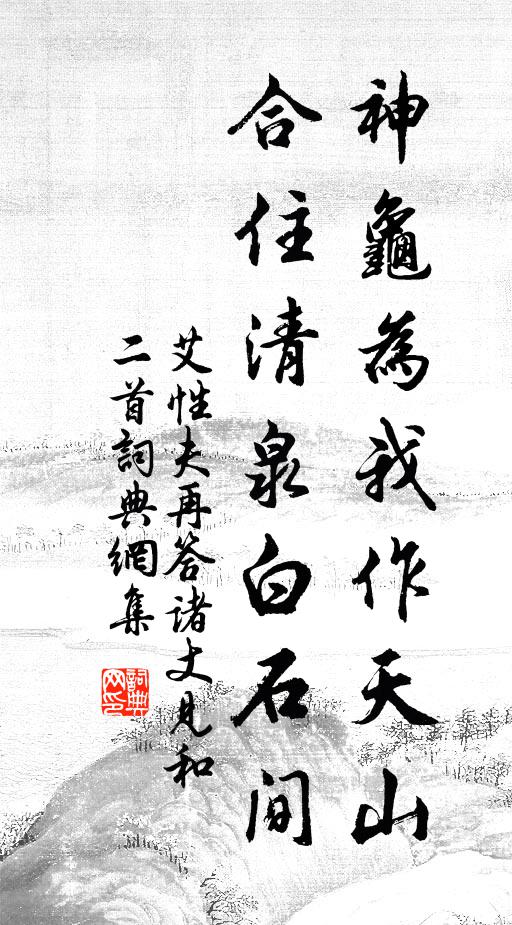 神龜為我作天山
合住清泉白石間
艾性夫再答諸丈見和
二首詞典網集
詞典
网印